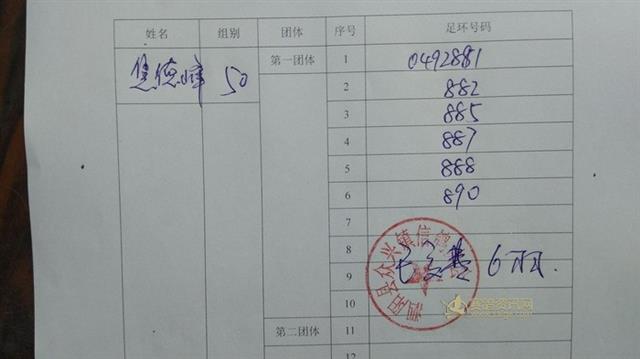 姓名 组别 团体 序号 足环号码
焦德峰 50 第一团体 1 0492881
2 882
3 885
4 887
5 888
6 890
7
8
9 已交费 6羽.
10
第二团体 11
12
泗阳县众兴镇信鸽